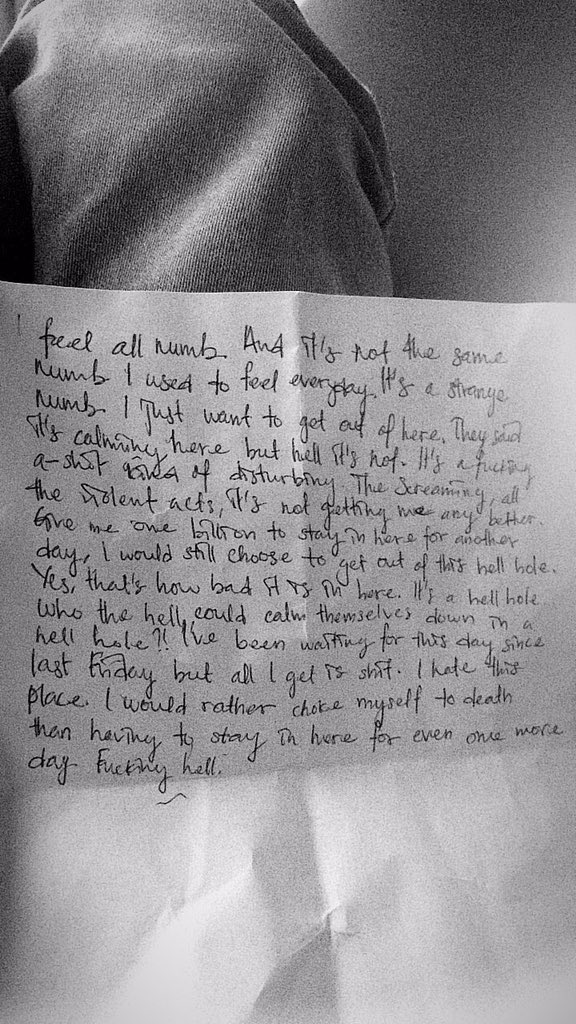 I feel all numb. And it's not the same
numb I used to feel everyday. It's a strange
numb. I just want to get out of here. They said
it's calming here but hell it's not. It's a fucking
a-shit kind of disturbing. The screaming, all
the violent acts, it's not getting me any better.
Give me one billion to stay in here for another
day, I would still choose to get out of this hell hole.
Yes, that's how bad it is in here. It's a hell hole.
Who the hell could calm themselves down in a
hell hole?! I've been waiting for this day since
last Friday but all I get is shit. I hate this
place. I would rather choke myself to death
than having to stay in here for even one more
day. Fucking hell.